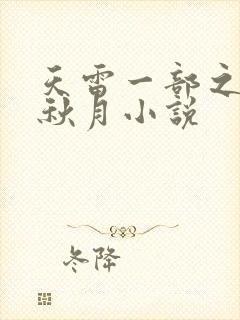 天雷一部之
秋月小说
冬降